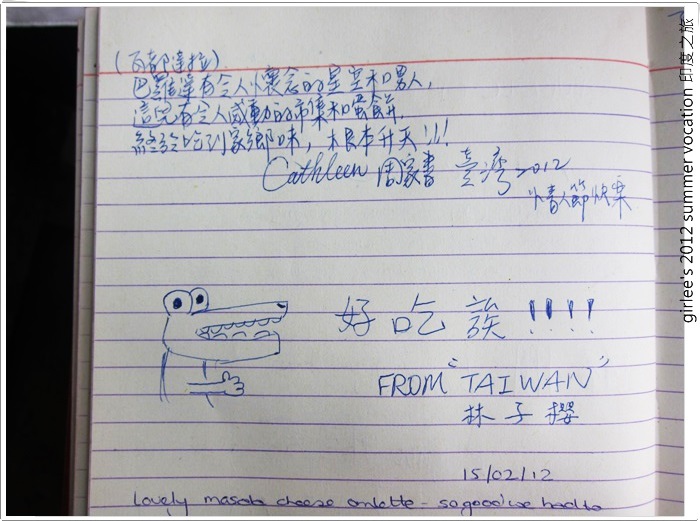 (瓦都達拉)
巴羅達有令人懷念的星空和男人,
這兒有令人感動的市集和蛋餅,
終於吃到家鄉味, 根本升天!!!
Cathleen 周家書 臺灣 2012
情人節快樂
好吃誒!!!!
FROM "TAIWAN"
林子櫻
15/02/12
Lovely masala cheese omlette - so good we had to
girlee's 2012 summer vocation 印度之旅